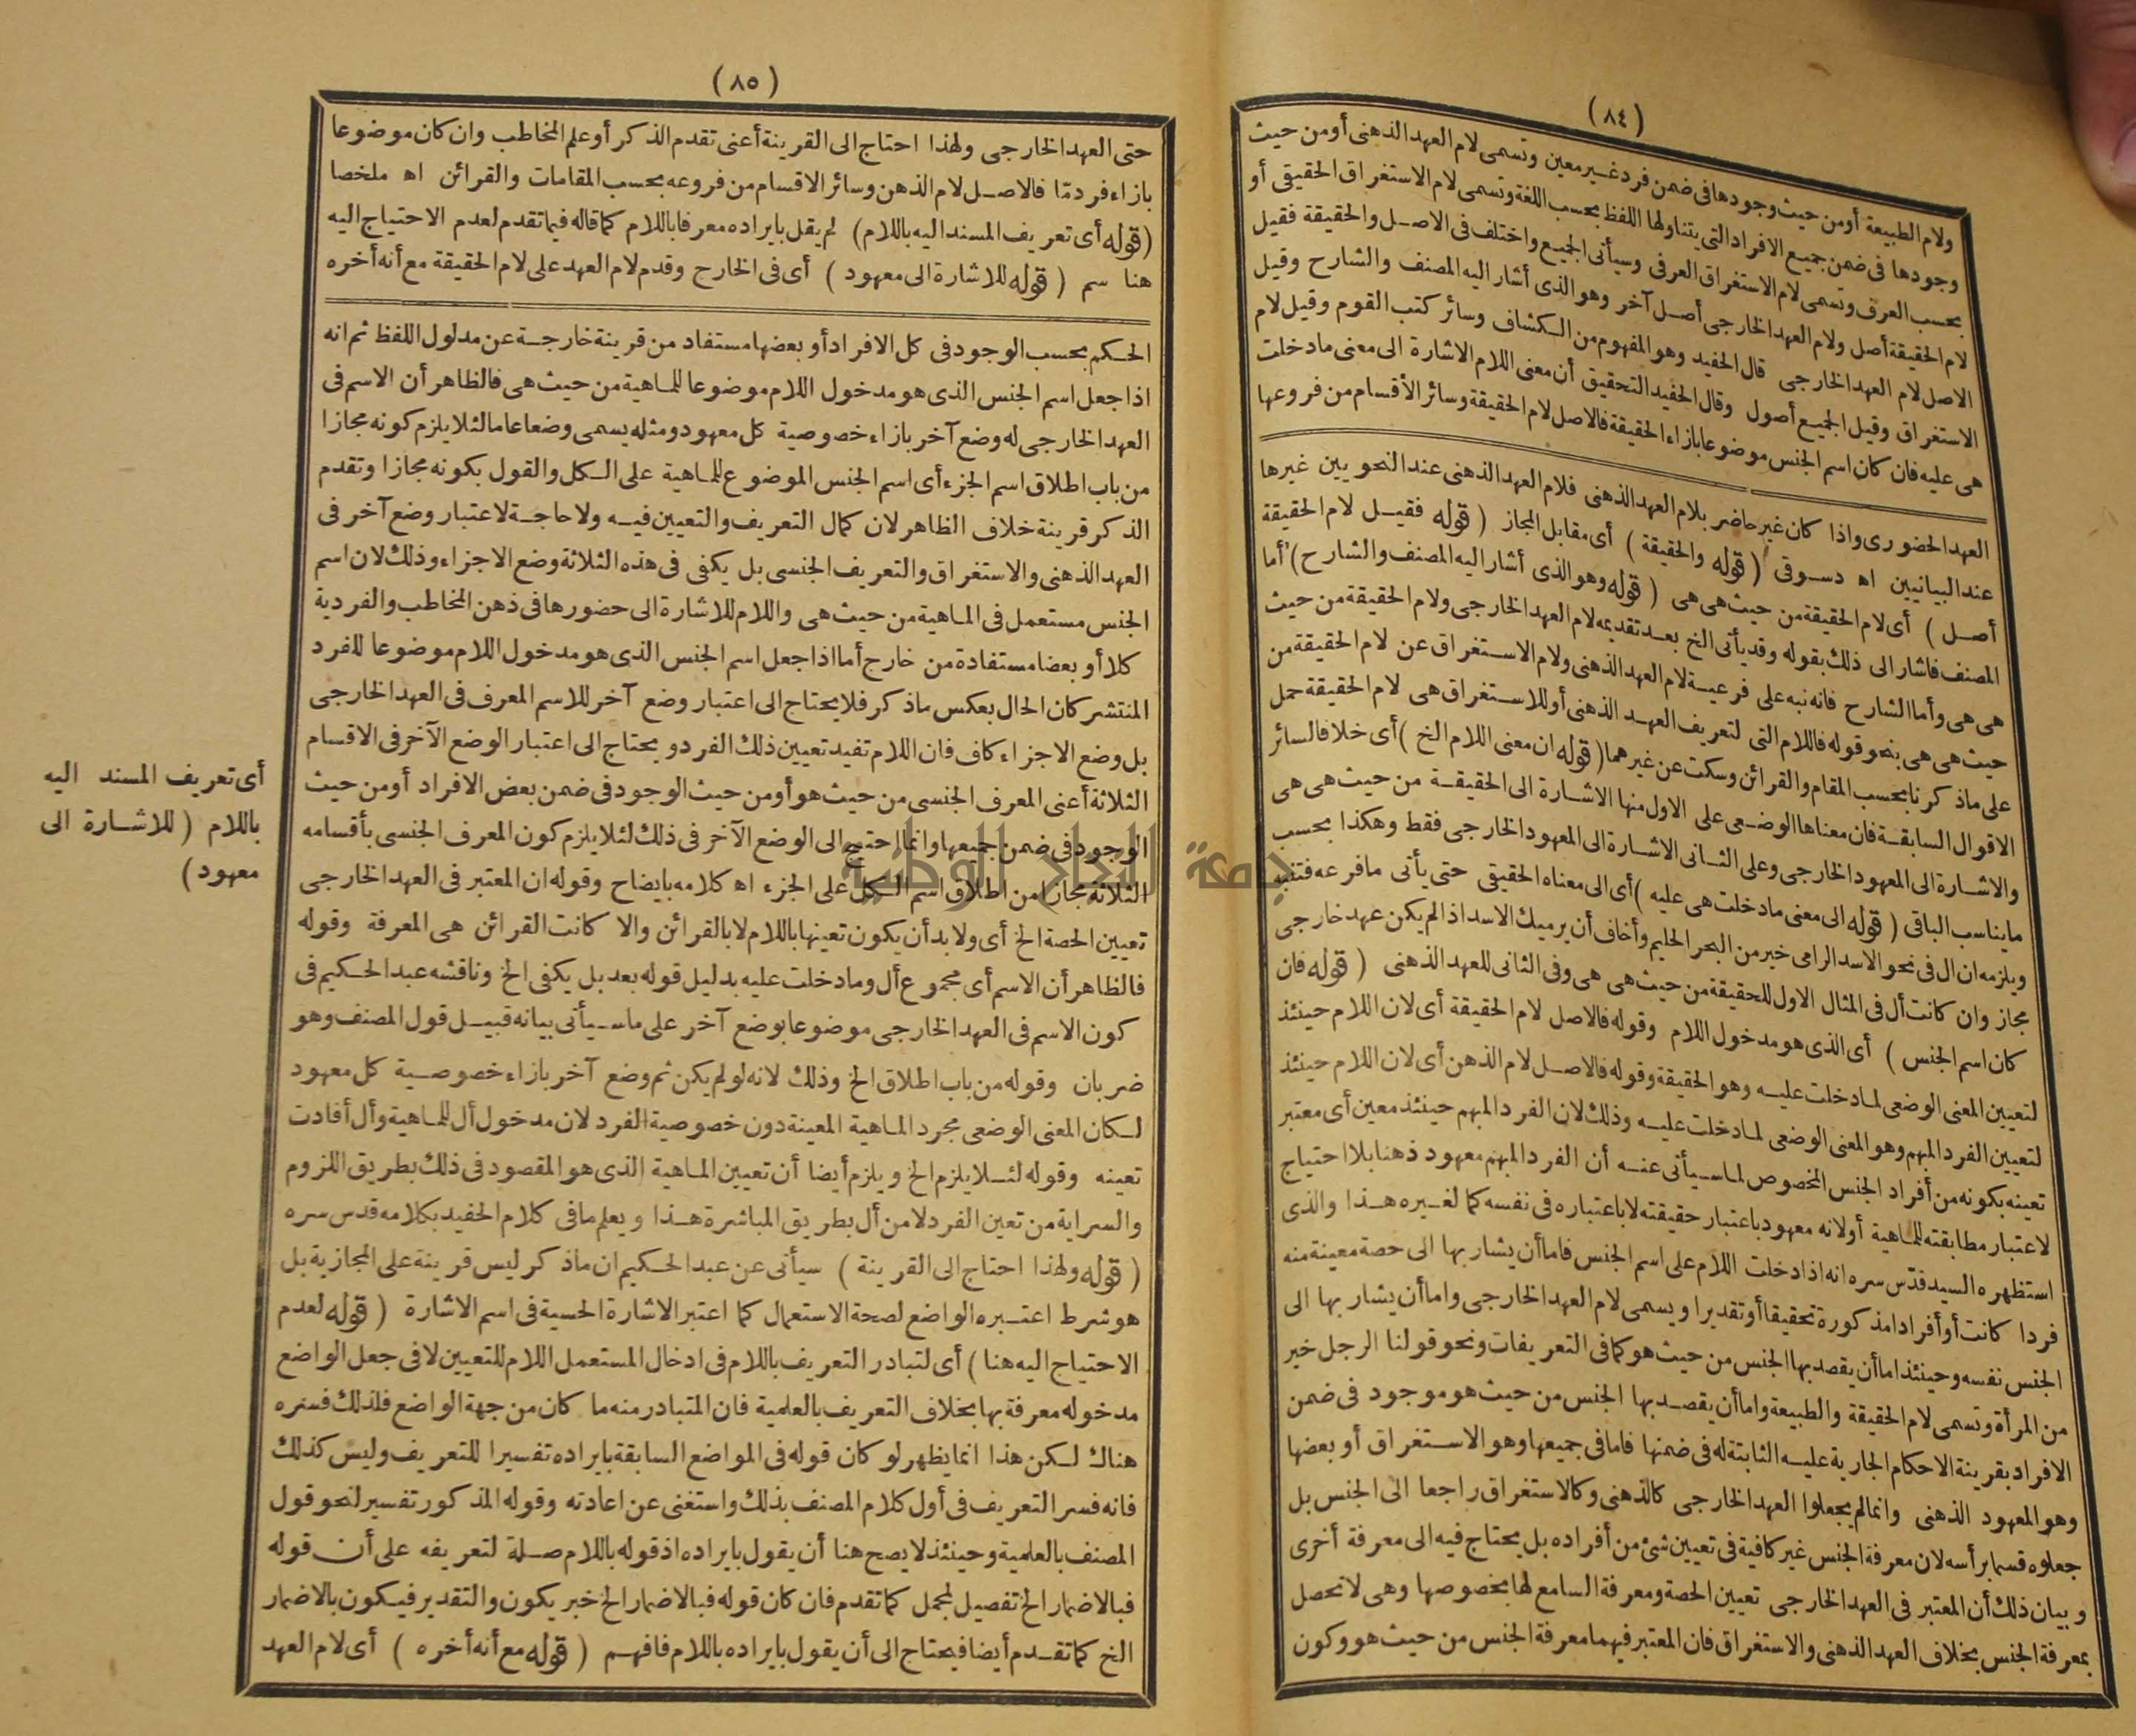 (٨٤)
ولام الطبيعة أو من حيث وجودها فى ضمن فرد غير معين وتسمى لام العهد الذهنى أو من حيث
وجودها فى ضمن جميع الافراد التى يتناولها اللفظ بحسب اللغة وتسمى لام الاستغراق الحقيقى أو
بحسب العرف وتسمى لام الاستغراق العرفى وسيأتى الجميع واختلف فى الاصل والحقيقة فقيل
لام الحقيقة أصل ولام العهد الخارجى أصل آخر وهو الذى أشار اليه المصنف والشارح وقيل
الاصل لام العهد الخارجى قال الحفيد وهو المفهوم من الكشاف وسائر كتب القوم وقيل لام
الاستغراق وقيل الجميع أصول وقال الحفيد التحقيق أن معنى اللام الاشارة الى معنى ما دخلت
هى عليه فان كان اسم الجنس موضوعا بازاء الحقيقة فالاصل لام الحقيقة وسائر الأقسام من فروعها
العهد الحضورى واذا كان غير حاضر بلام العهد الذهنى فلام العهد الذهنى عند النحويين غيرها
عند البيانيين اه دسوقى (قوله والحقيقة) أى مقابل المجاز (قوله فقيل لام الحقيقة
أصل) أى لام الحقيقة من حيث هى هى (قوله وهو الذى أشار اليه المصنف والشارح) أما
المصنف فاشار الى ذلك بقوله وقد يأتى الخ بعد تقديمه لام العهد الخارجى ولام الحقيقة من حيث
هى هى وأما الشارح فانه نبه على فرعية لام العهد الذهنى ولام الاستغراق عن لام الحقيقة من
حيث هى هى بنحو قوله فاللام التى لتعريف العهد الذهنى أو للاستغراق هى لام الحقيقة حمل
على ما ذكرنا بحسب المقام والقرائن وسكت عن غيرهما (قوله ان معنى اللام الخ) أى خلافا لسائر
الاقوال السابقة فان معناها الوضعى على الاول منها الاشارة الى الحقيقة من حيث هى هى
والاشارة الى المعهود الخارجى وعلى الثانى الاشارة الى المعهود الخارجى فقط وهكذا بحسب
ما يناسب الباقى (قوله الى معنى ما دخلت هى عليه) أى الى معناه الحقيقى حتى يأتى ما فرعه فتنبه
ويلزمه ان ال فى نحو الاسد الرامى خير من البحر الحليم وأخاف أن يرميك الاسد اذا لم يكن عهد خارجى
مجاز وان كانت أل فى المثال الاول للحقيقة من حيث هى هى وفى الثانى للعهد الذهنى (قوله فان
كان اسم الجنس) أى الذى هو مدخول اللام وقوله فالاصل لام الحقيقة أى لان اللام حينئذ
لتعيين المعنى الوضعى لما دخلت عليه وهو الحقيقة وقوله فالاصل لام الذهن أى لان اللام حينئذ
لتعيين الفرد المبهم وهو المعنى الوضعى لما دخلت عليه وذلك لان الفرد المبهم حينئذ معين أى معتبر
تعينه بكونه من أفراد الجنس المخصوص لما سيأتى عنه أن الفرد المبهم معهود ذهنا بلا احتياج
لاعتبار مطابقته للماهية أو لانه معهود باعتبار حقيقته لا باعتباره فى نفسه كما لغيره هذا والذى
استظهره السيد قدّس سره انه اذا دخلت اللام على اسم الجنس فاما أن يشار بها الى حصة معينة منه
فردا كانت أو أفرادا مذكورة تحقيقا أو تقديرا ويسمى لام العهد الخارجى واما أن يشار بها الى
الجنس نفسه وحينئذ اما أن يقصد بها الجنس من حيث هو كما فى التعريفات ونحو قولنا الرجل خير
من المرأة وتسمى لام الحقيقة والطبيعة واما أن يقصد بها الجنس من حيث هو موجود فى ضمن
الافراد بقرينة الاحكام الجارية عليه الثابتة له فى ضمنها فاما فى جميعها وهو الاستغراق أو بعضها
وهو المعهود الذهنى وانما لم يجعلوا العهد الخارجى كالذهنى وكالاستغراق راجعا الى الجنس بل
جعلوه قسما برأسه لان معرفة الجنس غير كافية فى تعيين شئ من أفراده بل يحتاج فيه الى معرفة أخرى
وبيان ذلك أن المعتبر فى العهد الخارجى تعيين الحصة ومعرفة السامع لها بخصوصها وهى لا تحصل
بمعرفة الجنس بخلاف العهد الذهنى والاستغراق فان المعتبر فيهما معرفة الجنس من حيث هو وكون
(٨٥)
حتى العهد الخارجى ولهذا احتاج الى القرينة أعنى تقدم الذكر أو علم المخاطب وان كان موضوعا
بازاء فرد مّا فالاصل لام الذهن وسائر الاقسام من فروعه بحسب المقامات والقرائن اه ملخصا
(قوله أى تعريف المسند اليه باللام) لم يقل بايراده معرفا باللام كما قاله فيما تقدم لعدم الاحتياج اليه
هنا سم (قوله للاشارة الى معهود) أى فى الخارج وقدم لام العهد على لام الحقيقة مع أنه أخره
الحكم بحسب الوجود فى كل الافراد أو بعضها مستفاد من قرينة خارجة عن مدلول اللفظ ثم انه
اذا جعل اسم الجنس الذى هو مدخول اللام موضوعا للماهية من حيث هى فالظاهر أن الاسم فى
العهد الخارجى له وضع آخر بازاء خصوصية كل معهود ومثله يسمى وضعا عاما لئلا يلزم كونه مجازا
من باب اطلاق اسم الجزء أى اسم الجنس الموضوع للماهية على الكل والقول بكونه مجازا وتقدم
الذكر قرينة خلاف الظاهر لان كمال التعريف والتعيين فيه ولا حاجة لاعتبار وضع آخر فى
العهد الذهنى والاستغراق والتعريف الجنسى بل يكفى فى هذه الثلاثة وضع الاجزاء وذلك لان اسم
الجنس مستعمل فى الماهية من حيث هى واللام للاشارة الى حضورها فى ذهن المخاطب والفردية
كلا أو بعضا مستفادة من خارج أما اذا جعل اسم الجنس الذى هو مدخول اللام موضوعا للفرد
المنتشر كان الحال بعكس ما ذكر فلا يحتاج الى اعتبار وضع آخر للاسم المعرف فى العهد الخارجى
بل وضع الاجزاء كاف فان اللام تفيد تعيين ذلك الفرد ويحتاج الى اعتبار الوضع الآخر فى الاقسام
الثلاثة أعنى المعرف الجنسى من حيث هو أو من حيث الوجود فى ضمن بعض الافراد أو من حيث
الوجود فى ضمن جميعها وانما احتيج الى الوضع الآخر فى ذلك لئلا يلزم كون المعرف الجنسى بأقسامه
الثلاثة مجازا من اطلاق اسم الكل على الجزء اه كلامه بايضاح وقوله ان المعتبر فى العهد الخارجى
تعيين الحصة الخ أى ولا بد أن يكون تعينها باللام لا بالقرائن والا كانت القرائن هى المعرفة وقوله
فالظاهر أن الاسم أى مجموع أل وما دخلت عليه بدليل قوله بعد بل يكفى الخ وناقشه عبد الحكيم فى
كون الاسم فى العهد الخارجى موضوعا بوضع آخر على ما سيأتى بيانه قبيل قول المصنف وهو
ضربان وقوله من باب اطلاق الخ وذلك لانه لو لم يكن ثم وضع آخر بازاء خصوصية كل معهود
لكان المعنى الوضعى مجرد الماهية المعينة دون خصوصية الفرد لان مدخول أل للماهية وأل أفادت
تعينه وقوله لئلا يلزم الخ ويلزم أيضا أن تعيين الماهية الذى هو المقصود فى ذلك بطريق اللزوم
والسراية من تعين الفرد لا من أل بطريق المباشرة هذا ويعلم ما فى كلام الحفيد بكلامه قدس سره
(قوله ولهذا احتاج الى القرينة) سيأتى عن عبد الحكيم ان ما ذكر ليس قرينة على المجازية بل
هو شرط اعتبره الواضع لصحة الاستعمال كما اعتبر الاشارة الحسية فى اسم الاشارة (قوله لعدم
الاحتياج اليه هنا) أى لتبادر التعريف باللام فى ادخال المستعمل اللام للتعيين لا فى جعل الواضع
مدخوله معرفة بها بخلاف التعريف بالعلمية فان المتبادر منه ما كان من جهة الواضع فلذلك فسره
هناك لكن هذا انما يظهر لو كان قوله فى المواضع السابقة بايراده تفسيرا للتعريف وليس كذلك
فانه فسر التعريف فى أول كلام المصنف بذلك واستغنى عن اعادته وقوله المذكور تفسير لنحو قول
المصنف بالعلمية وحينئذ لا يصح هنا أن يقول بايراده اذ قوله باللام صلة لتعريفه على أن قوله
فبالاضمار الخ تفصيل لمجمل كما تقدم فان كان قوله فبالاضمار الخ خبر يكون والتقدير فيكون بالاضمار
الخ كما تقدم أيضا فيحتاج الى أن يقول بايراده باللام فافهم (قوله مع أنه أخره) أى لام العهد
أى تعريف المسند اليه
باللام (للاشارة الى
معهود)
جامعة النجاح الوطنية